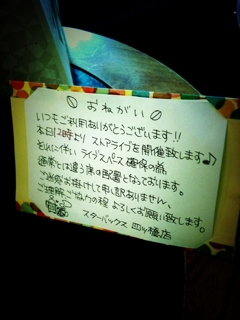 おねがい
いつもご利用ありがとうございます!!
本日12時より ストアライブを開催致します♪
それに伴い ライブスペース確保の為
通常とは違う席の配置となっております。
ご迷惑お掛けして申し訳ありません、
ご理解ご協力の程 よろしくお願い致します。
スターバックス 四ツ橋店